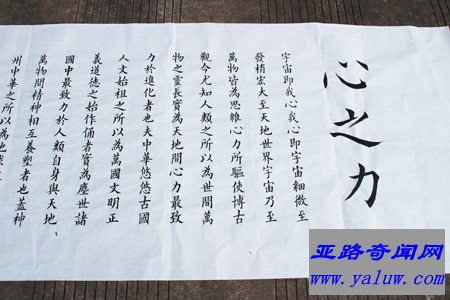 心之力
宇宙即我心我心即宇宙細微至
發梢宏大至天地世界宇宙乃至
萬物皆為思維心力所驅使博古
觀今尤知人類之所以為世間萬
物之靈長實為天地間心力最致
力於進化者也夫中華悠悠古國
人文始祖之所以為萬國文明正
義道德之始作俑者實為塵世諸
國中最致力於人類自身與天地
萬物間精神相互養塑者也蓋神
州中華之所以為
亚路奇闻网
www.yaluw.com